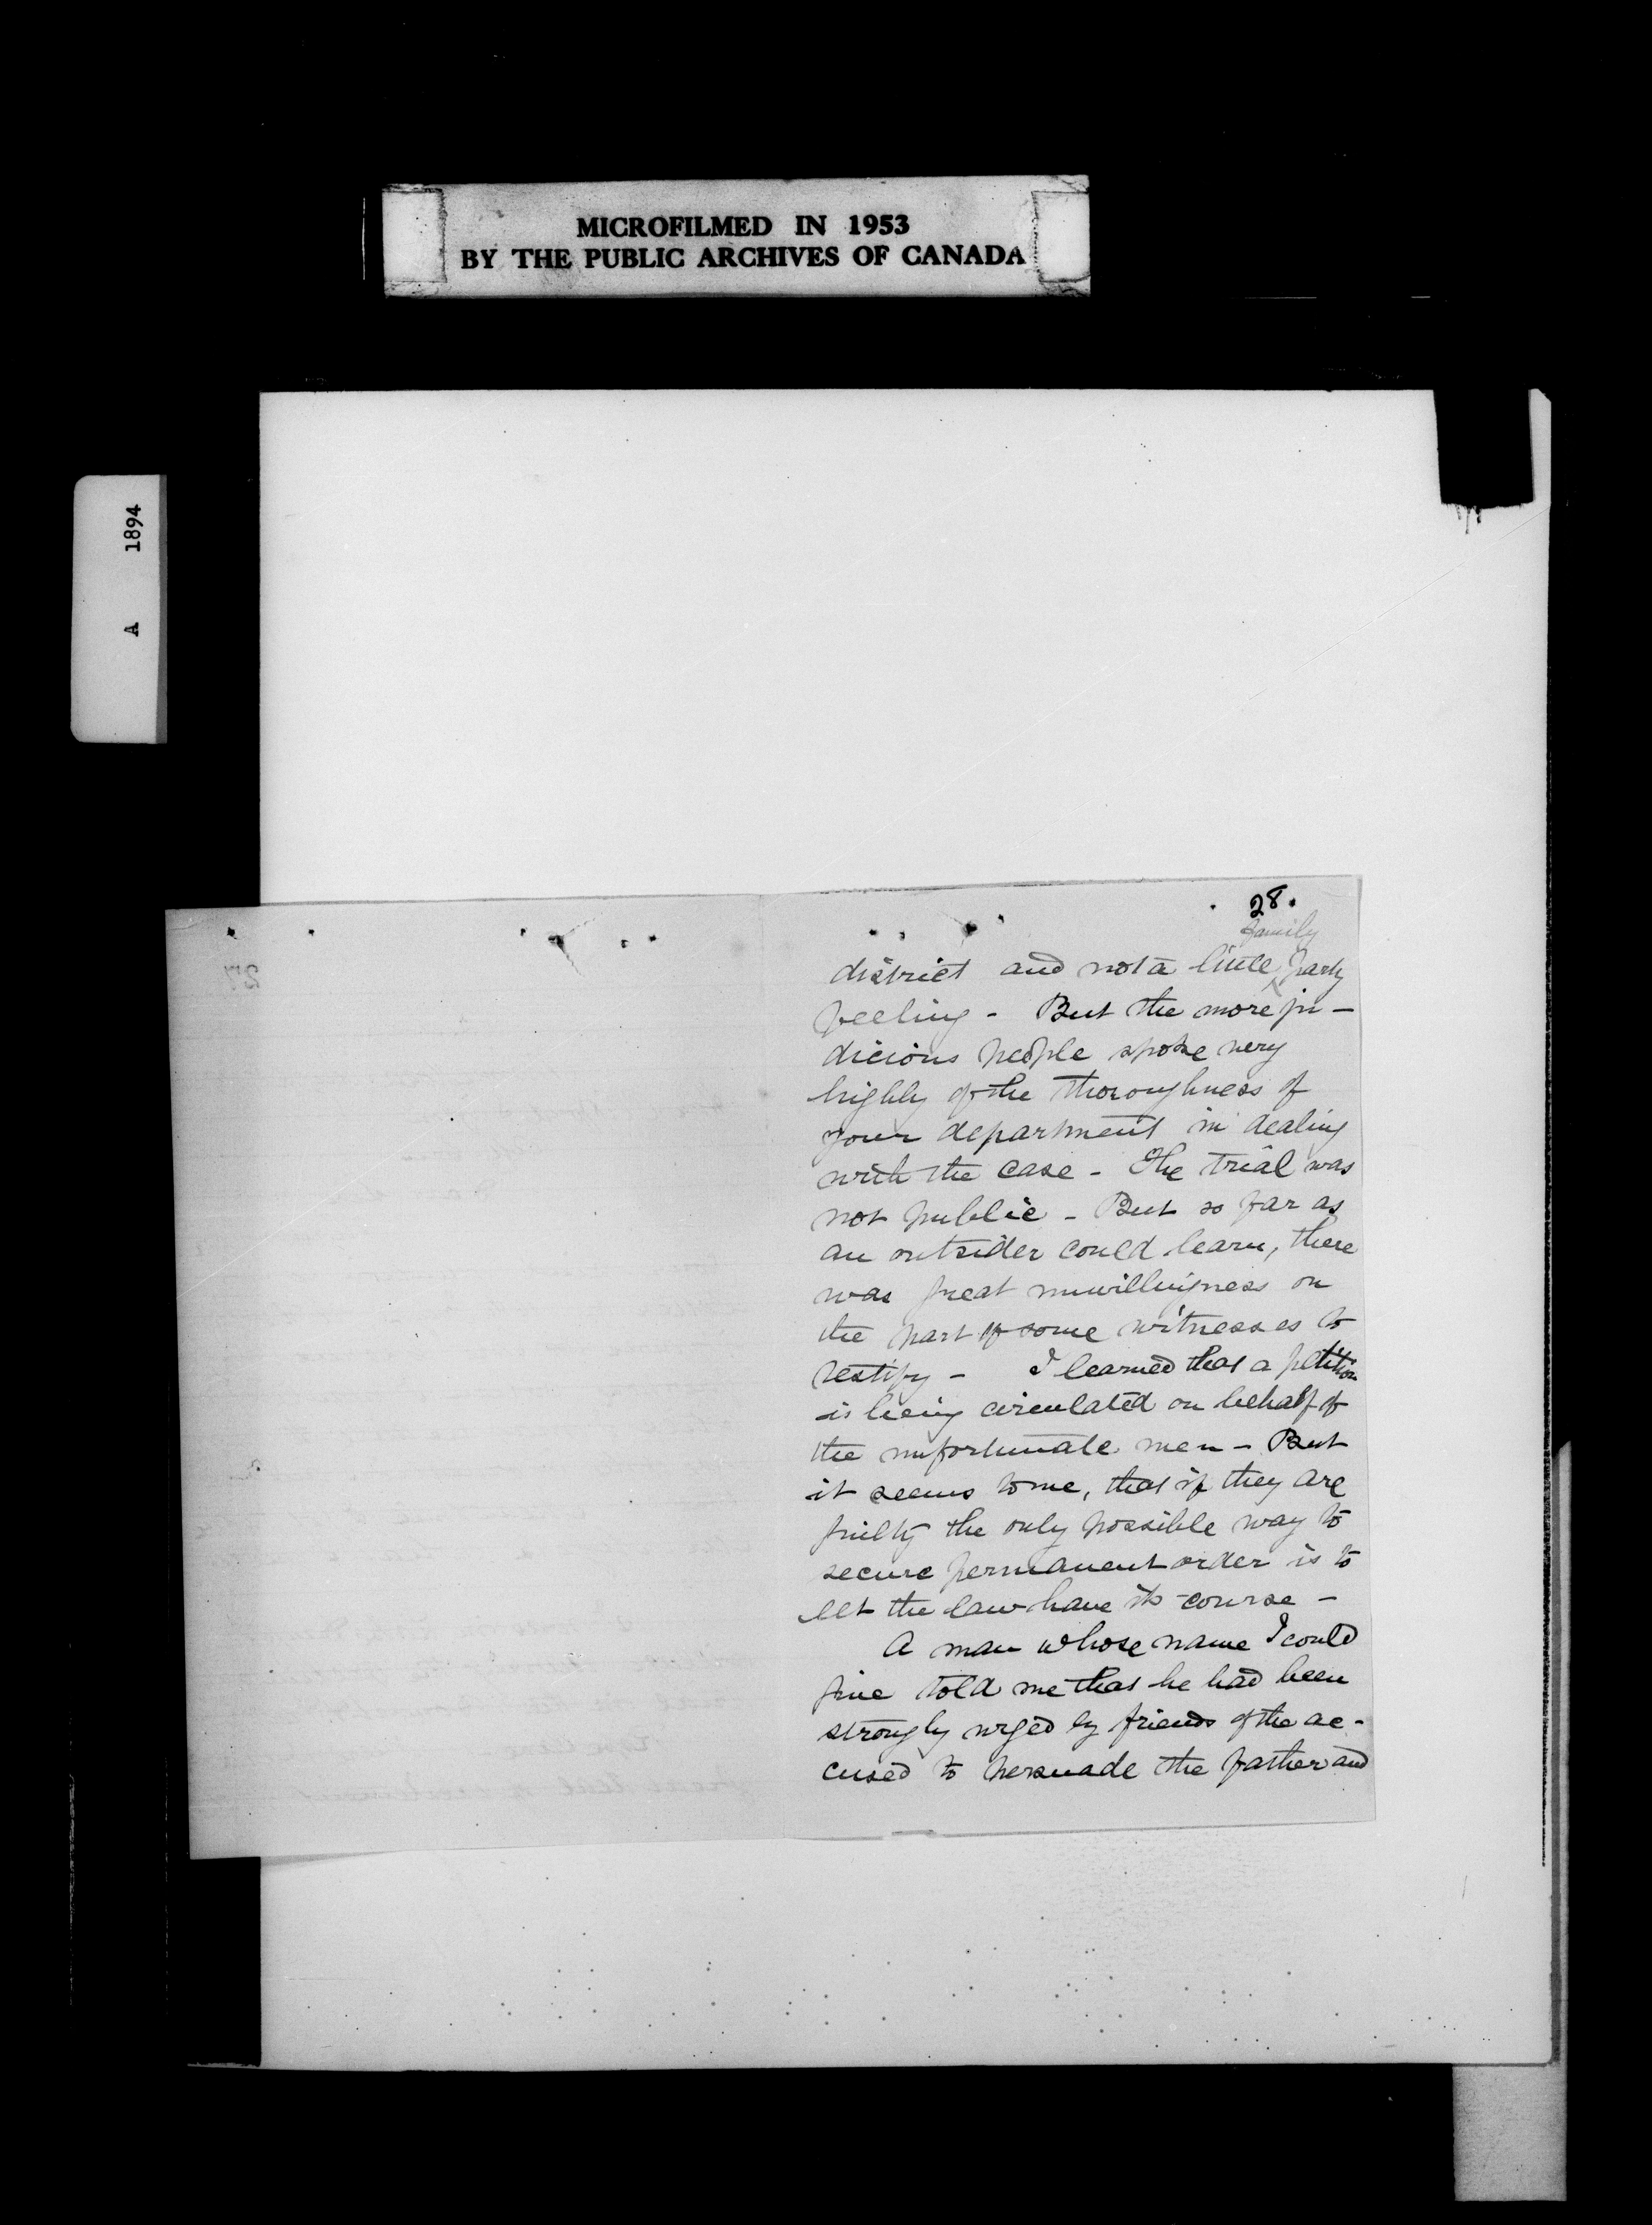 MICROFILMED IN 1953
BY THE PUBLIC ARCHIVES OF CANADA
A 1894
28.
family
district and not a little party
feeling - But the more ju-
dicious people spoke very
highly of the thoroughness of
your department in dealing
with the case - The trial was
not public - But so far as
an outsider could learn, there
was great unwillingness on
the part of some witnesses to
testify - I learned that a petition
is being circulated on behalf of
the unfortunate men - But
it seems to me, that if they are
guilty the only possible way to
secure permanent order is to
let the law have its course -
A man whose name I could
give told me that he had been
strongly urged by friends of the ac-
cused to persuade the father and
27